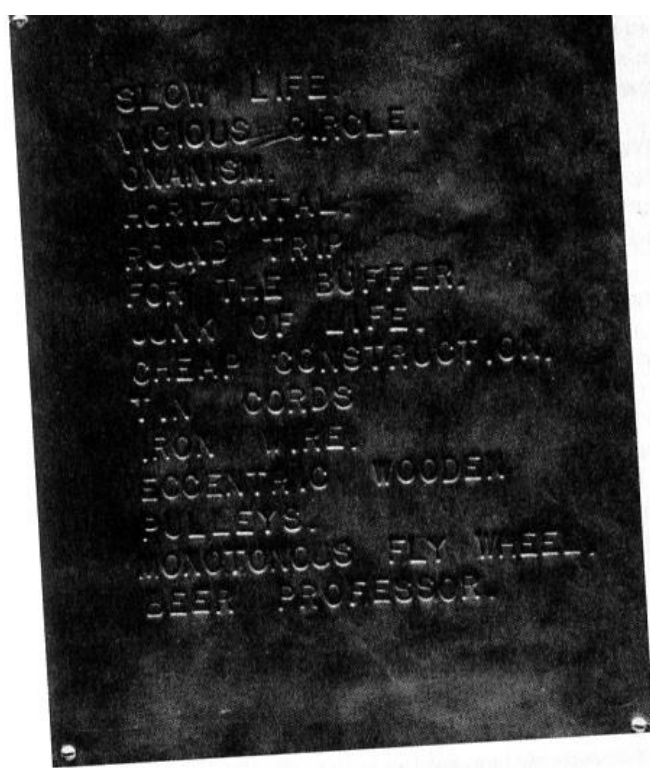 SLOW LIFE.
VICIOUS CIRCLE.
ONANISM.
HORIZONTAL.
ROUND TRIP
FOR THE BUFFER.
JUNK OF LIFE.
CHEAP CONSTRUCTION.
TIN CORDS
IRON WIRE.
ECCENTRIC WOODEN
PULLEYS.
MONOTONOUS FLY WHEEL.
BEER PROFESSOR.